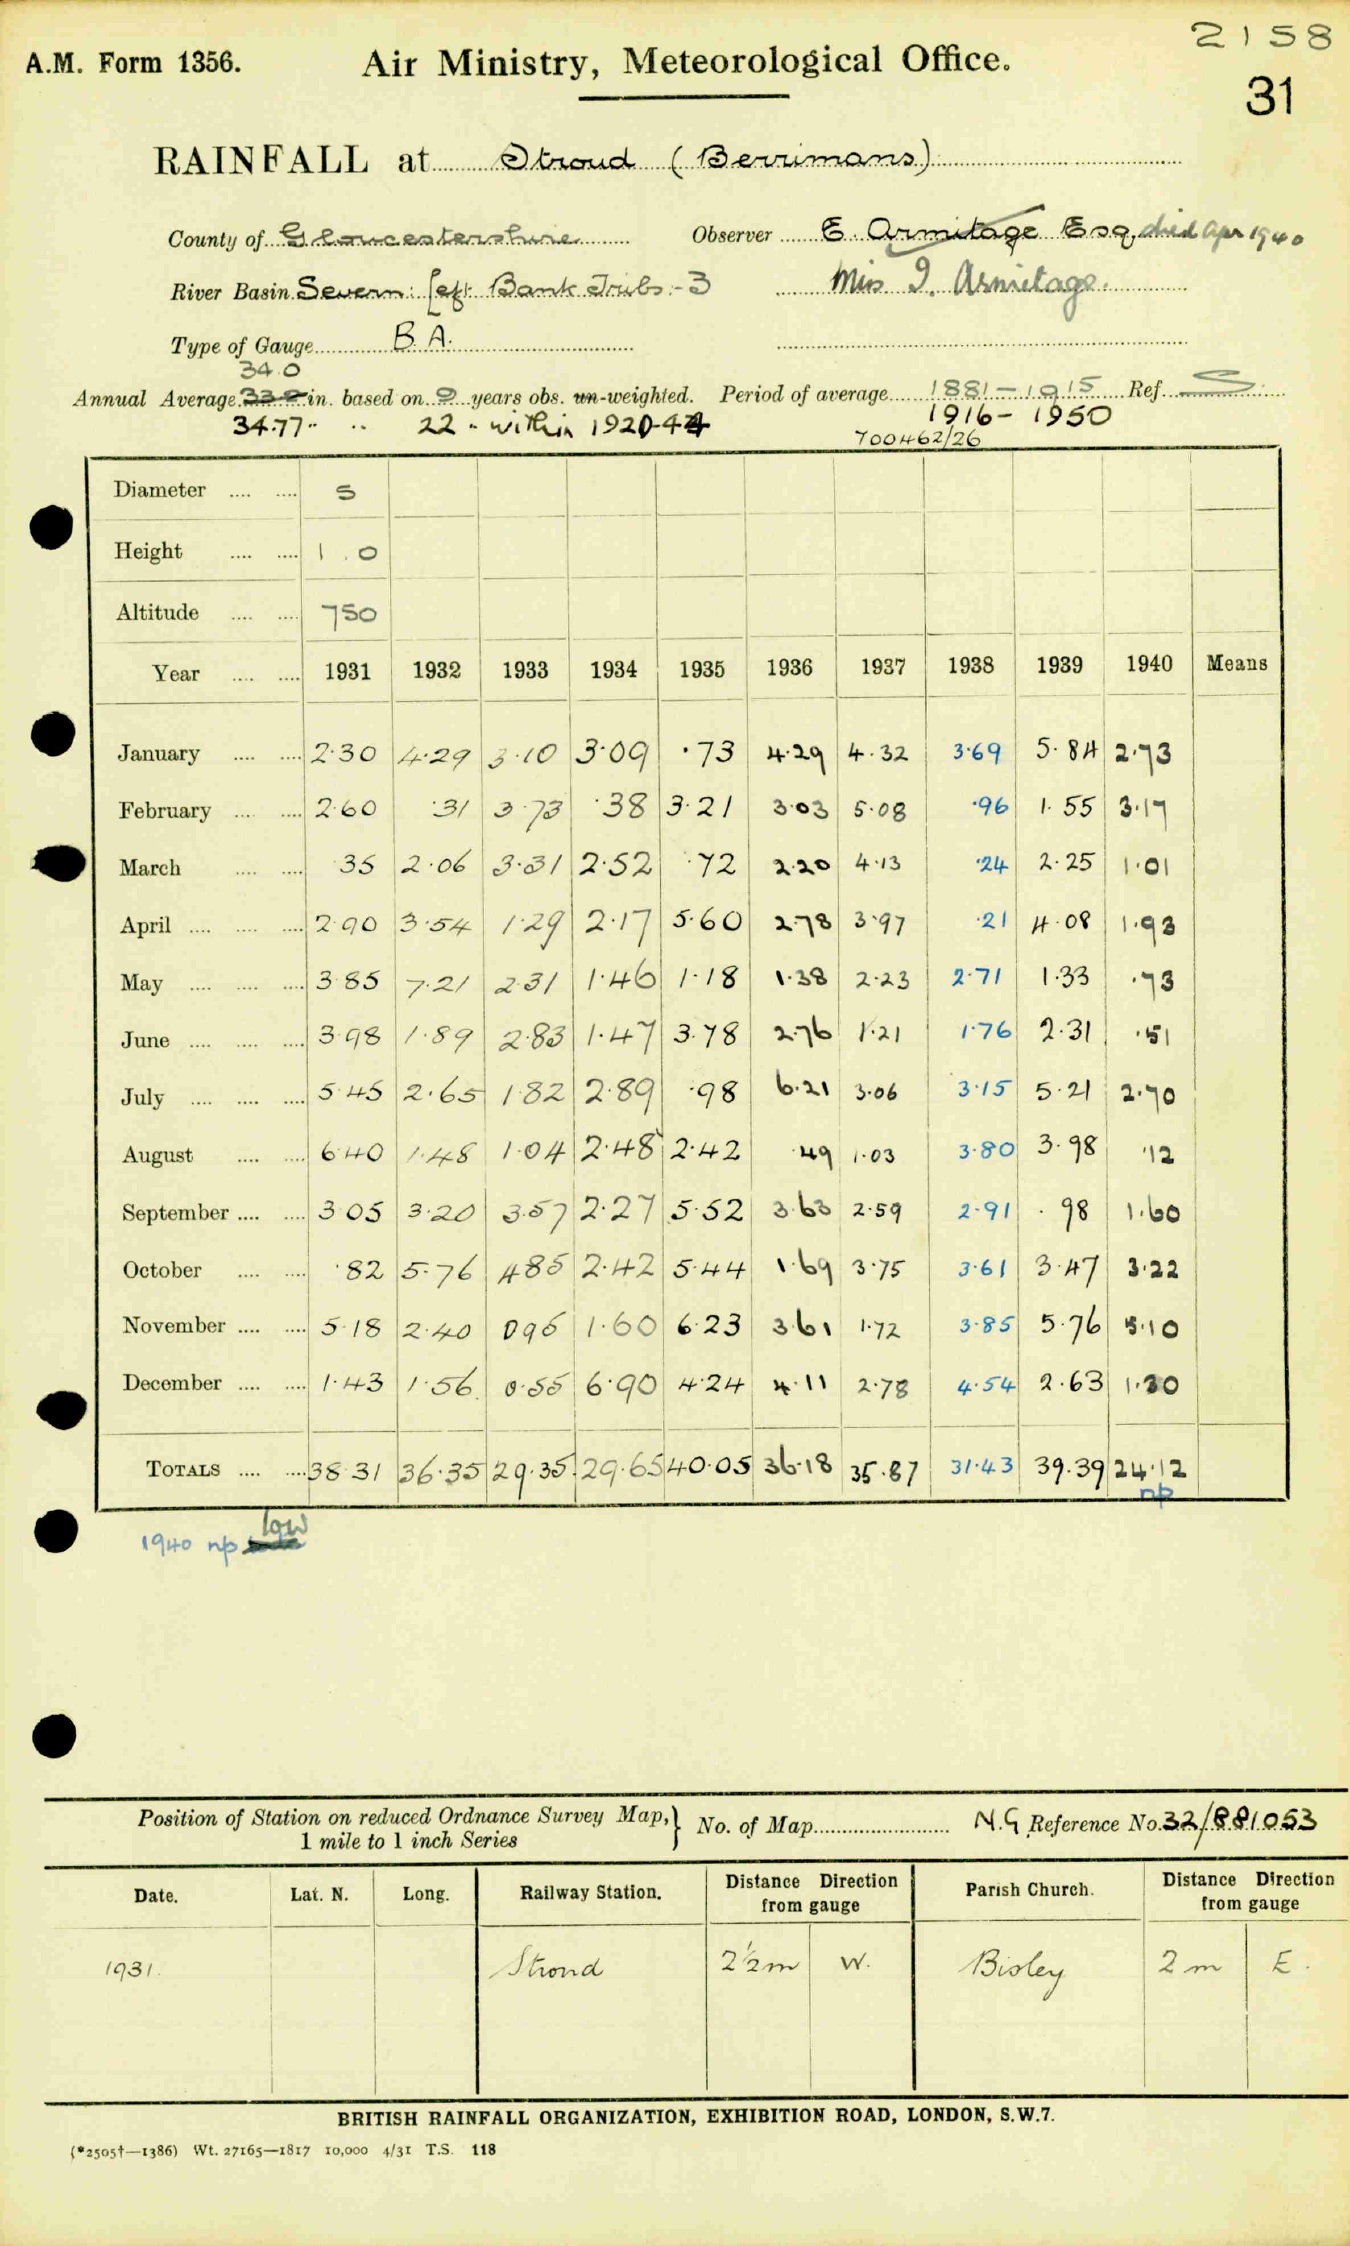 2158
A.M. Form 1356. Air Ministry, Meteorological Office.
31
RAINFALL at Stroud (Berrimans)
County of Gloucestershire Observer E. Armitage Esq. died Apr 1940
River Basin Severn: Left Bank Tribs:-3 Miss I. Armitage.
Type of Gauge B.A.
34.0
Annual Average in. based on 9 years obs. un-weighted. Period of average 1881-1915 Ref. S
34.77 " .. 22 " within 1920-44 1916-1950
700462/26
Diameter .... .... 5
Height .... .... 1.0
Altitude .... .... 750
Year .... .... 1931 1932 1933 1934 1935 1936 1937 1938 1939 1940 Means
January .... .... 2.30 4.29 3.10 3.09 .73 4.29 4.32 3.69 5.84 2.73
February .... .... 2.60 .31 3.73 .38 3.21 3.03 5.08 .96 1.55 3.17
March .... .... 35 2.06 3.31 2.52 .72 2.20 4.13 .24 2.25 1.01
April .... .... .... 2.90 3.54 1.29 2.17 5.60 2.78 3.97 .21 4.08 1.93
May .... .... .... 3.85 7.21 2.31 1.46 1.18 1.38 2.23 2.71 1.33 .73
June .... .... .... 3.98 1.89 2.83 1.47 3.78 2.76 1.21 1.76 2.31 .51
July .... .... .... 5.45 2.65 1.82 2.89 .98 6.21 3.06 3.15 5.21 2.70
August .... .... 6.40 1.48 1.04 2.48 2.42 .49 1.03 3.80 3.98 .12
September .... .... 3.05 3.20 3.57 2.27 5.52 3.63 2.59 2.91 .98 1.60
October .... .... .82 5.76 4.85 2.42 5.44 1.69 3.75 3.61 3.47 3.22
November .... .... 5.18 2.40 0.95 1.60 6.23 3.61 1.72 3.85 5.76 5.10
December .... .... 1.43 1.56 0.55 6.90 4.24 4.11 2.78 4.54 2.63 1.30
TOTALS .... .... 38.31 36.35 29.35 29.65 40.05 36.18 35.87 31.43 39.39 24.12
np
low
1940 np
Position of Station on reduced Ordnance Survey Map, } No. of Map N.G Reference No. 32/881053
1 mile to 1 inch Series
Date. Lat. N. Long. Railway Station. Distance Direction from gauge Parish Church. Distance Direction from gauge
1931. Stroud 2½m W. Bisley 2m E.
BRITISH RAINFALL ORGANIZATION, EXHIBITION ROAD, LONDON, S.W.7.
(*2505†—1386) Wt. 27165—1817 10,000 4/31 T.S. 118